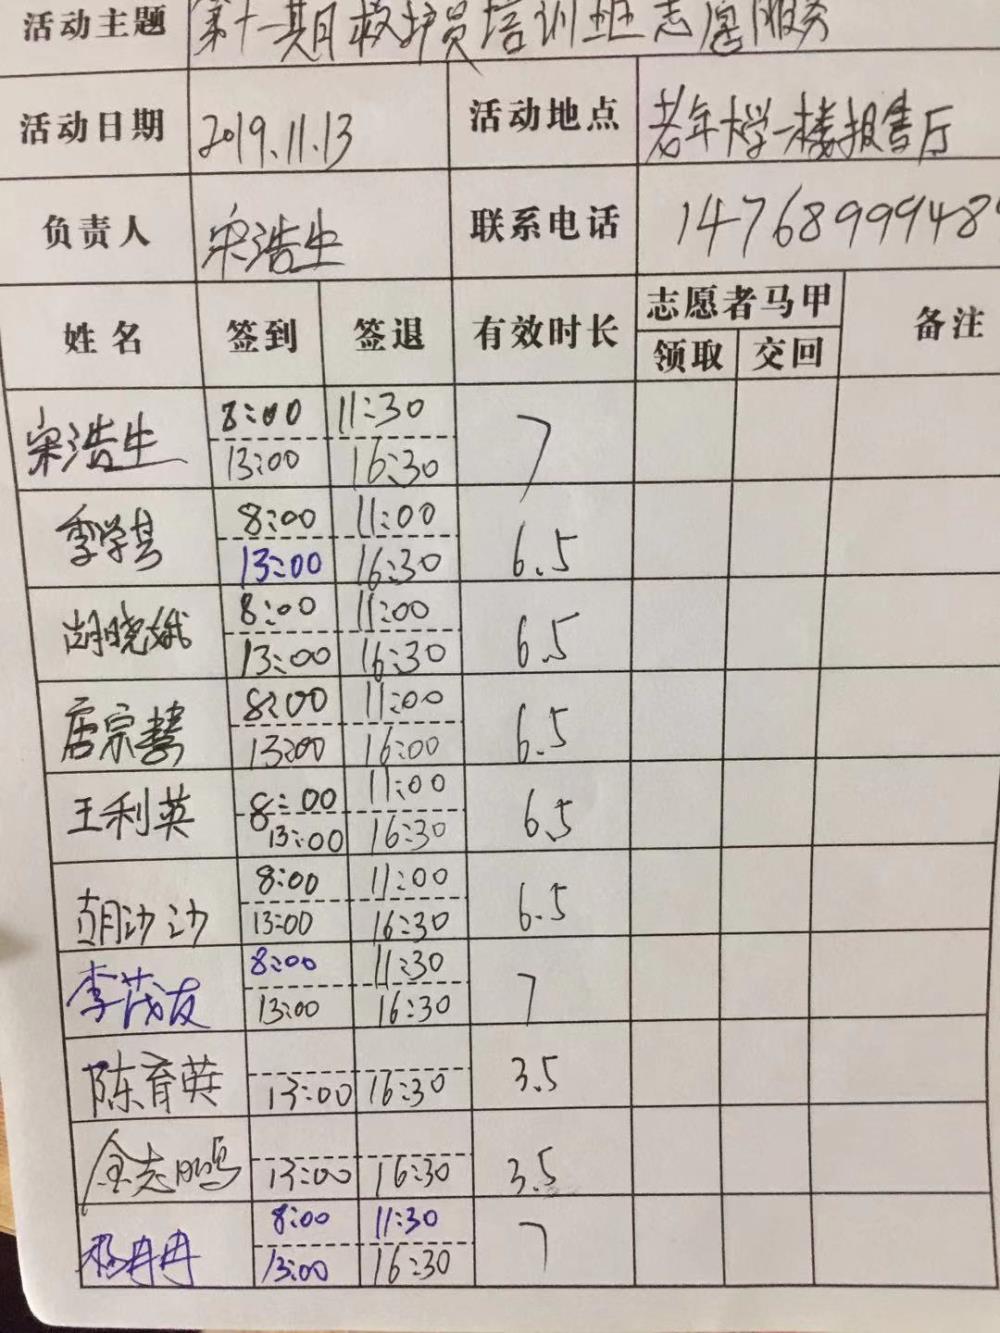 活动主题 第十一期救护员培训班志愿服务
活动日期 2019.11.13 活动地点 老年大学一楼报告厅
负责人 宋浩生 联系电话 1476899948
姓名 签到 签退 有效时长 志愿者马甲 备注
领取 交回
宋浩生 8:00 11:30 7
13:00 16:30
季学其 8:00 11:00 6.5
13:00 16:30
胡晓娥 8:00 11:00 6.5
13:00 16:30
唐宗慧 8:00 11:00 6.5
13:00 16:00
王利英 8:00 11:00 6.5
8 13:00 16:30
胡沙沙 8:00 11:00 6.5
13:00 16:30
李茂友 8:00 11:30 7
13:00 16:30
陈育英 13:00 16:30 3.5
金志鸣 13:00 16:30 3.5
杨冉冉 8:00 11:30 7
13:00 16:30